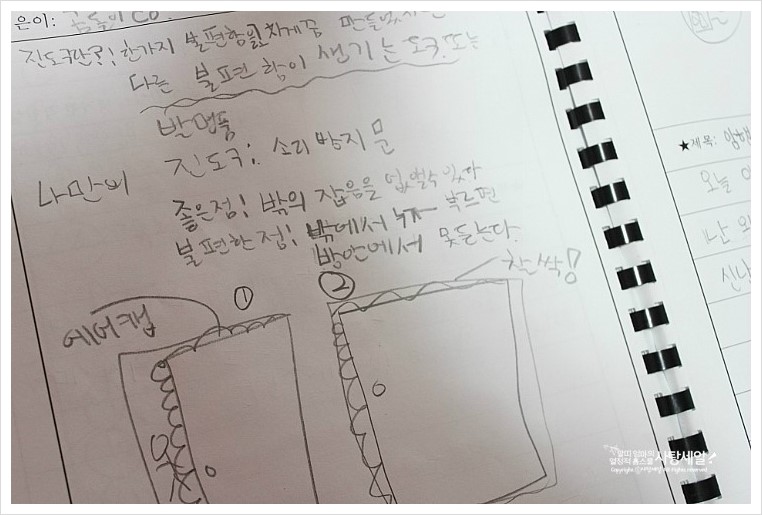 은이:
진도구란?! 한가지 불편함을 고치게끔 만들었지만
다른 불편함이 생기는 도구.또는
발명품
나만의 진도구: 소리 방지 문
좋은점! 밖의 잡음을 없앨수 있다
불편한점! 밖에서 누가 부르면
방안에서 못듣는다.
찰싹!
①
②
에어캡
★제목:
오늘
난
신나
사탕세알!